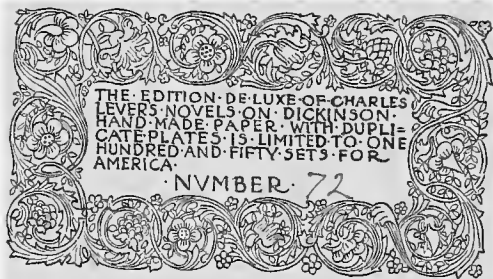 THE·EDITION·DE·LUXE·OF·CHARLES
LEVERS·NOVELS·ON·DICKINSON·
HAND·MADE·PAPER·WITH·DUPLI=
CATE·PLATES·IS·LIMITED·TO·ONE
HUNDRED·AND·FIFTY·SETS·FOR
AMERICA·
·NVMBER· 72